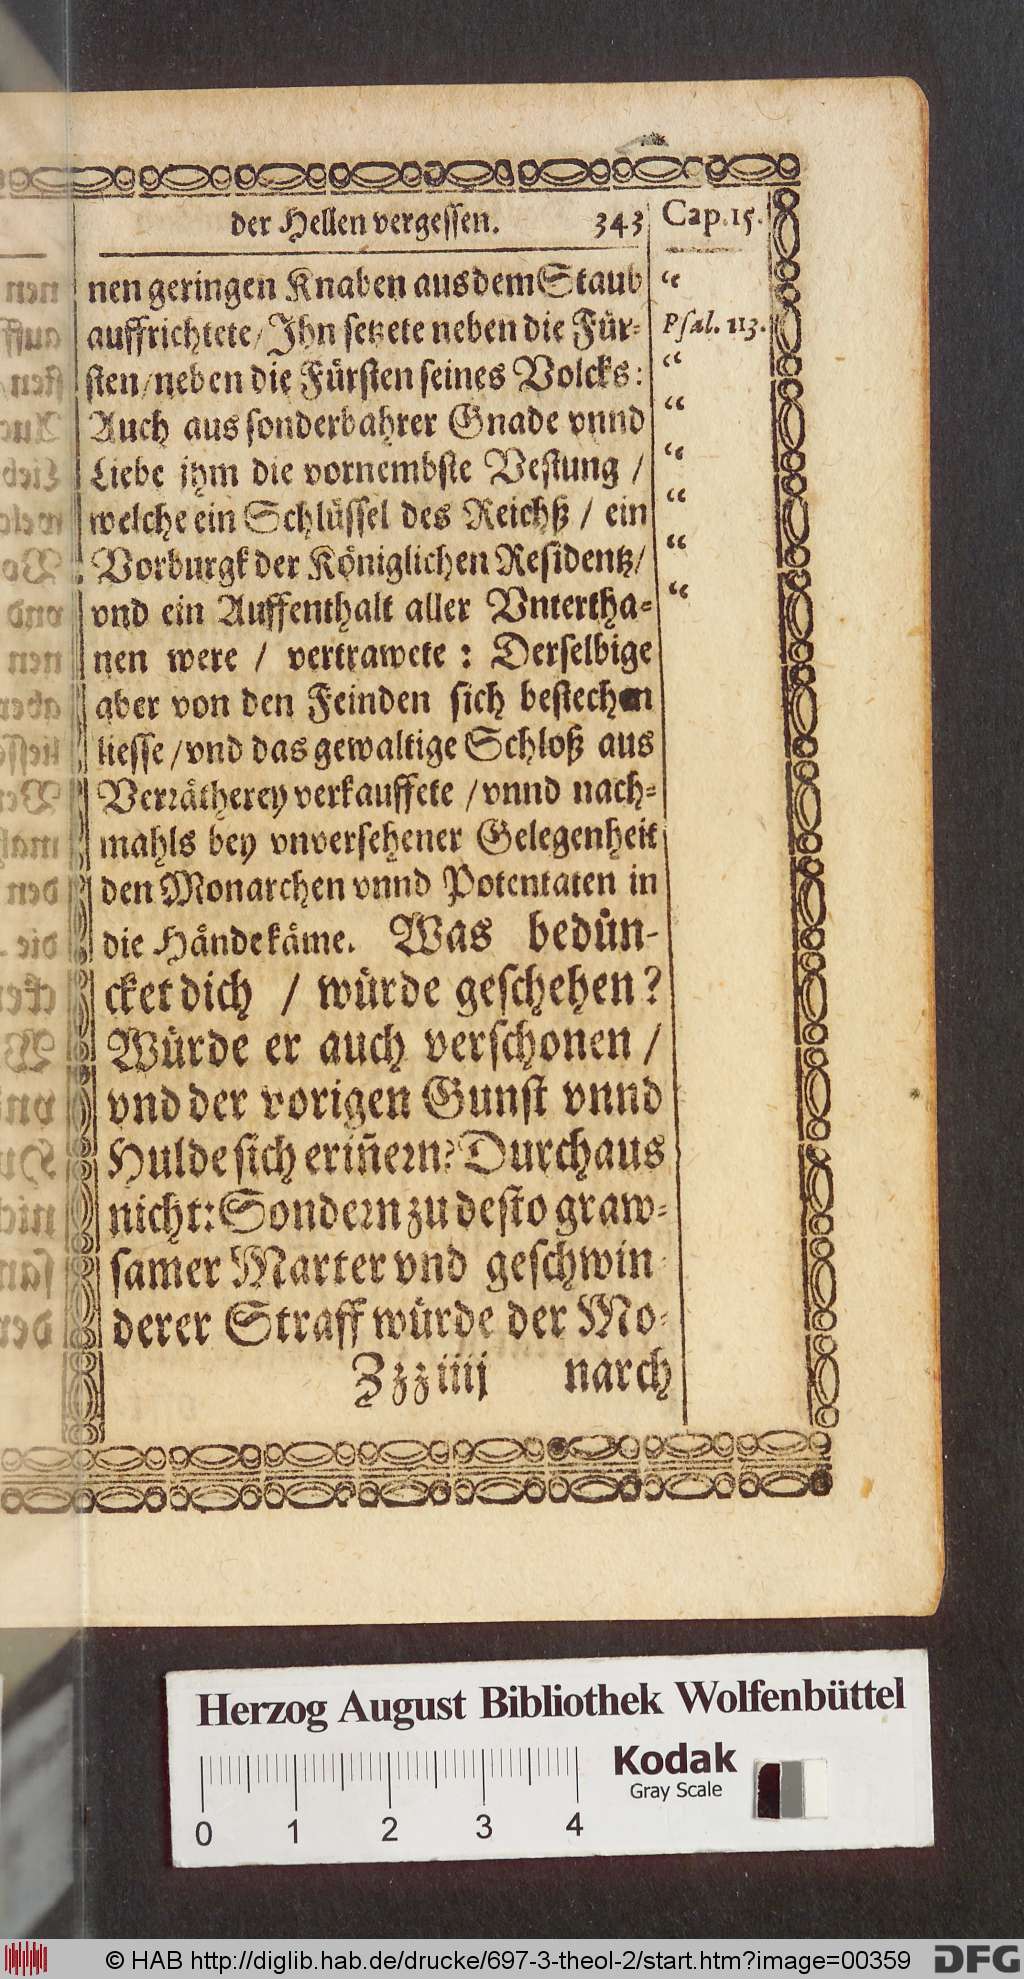 der Hellen vergessen. 343 Cap. 15.
nen geringen Knaben aus dem Staub “
auffrichtete / Ihn setzete neben die Für= Psal. 113.
sten / neben die Fürsten seines Volcks: “
Auch aus sonderbahrer Gnade vnnd “
Liebe ihm die vornembste Vestung / “
welche ein Schlüssel des Reichß / ein “
Vorburgk der Königlichen Residentz / “
vnd ein Auffenthalt aller Vntertha= “
nen were / vertrawete : Derselbige
aber von den Feinden sich bestechen
liesse / vnd das gewaltige Schloß aus
Verrätherey verkauffete / vnnd nach=
mahls bey vnversehener Gelegenheit
den Monarchen vnnd Potentaten in
die Hände käme. Was bedün-
cket dich / würde geschehen?
Würde er auch verschonen /
vnd der vorigen Gunst vnnd
Hulde sich erin̄ern? Durchaus
nicht: Sondern zu desto graw=
samer Marter vnd geschwin-
derer Straff würde der Mo-
Zzz iiij narch
Herzog August Bibliothek Wolfenbüttel
Kodak
Gray Scale
0 1 2 3 4
© HAB http://diglib.hab.de/drucke/697-3-theol-2/start.htm?image=00359 DFG